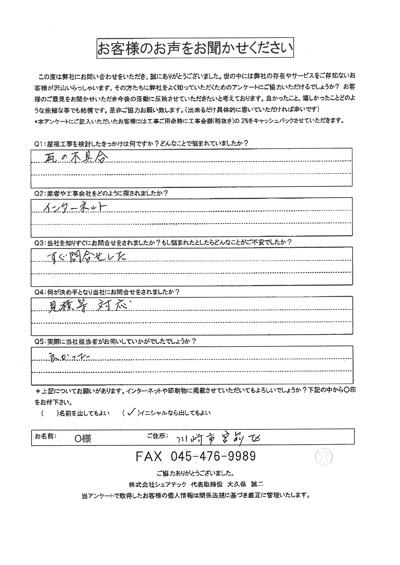 お客様のお声をお聞かせください
この度は弊社にお問い合わせをいただき、誠にありがとうございました。世の中には弊社の存在やサービスをご存知ないお
客様が沢山いらっしゃいます。その方たちに弊社をよく知っていただくためのアンケートにご協力いただけるでしょうか? お客
様のご意見をお聞かせいただき今後の活動に反映させていただきたいと考えております。良かったこと、嬉しかったことどのよ
うな些細な事でも結構です。是非ご協力お願い致します。(出来るだけ具体的に書いていただければ幸いです)
*本アンケートにご記入いただいたお客様には工事ご用命時に工事金額(税抜き)の2%をキャッシュバックさせていただきます。
Q1:屋根工事を検討したきっかけは何ですか?どんなことで悩まれていましたか?
瓦の不具合
Q2:業者や工事会社をどのように探されましたか?
インターネット
Q3:当社を知りすぐにお問合せをされましたか?もし悩まれたとしたらどんなことがご不安でしたか?
すぐ問合せした
Q4:何が決め手となり当社にお問合せをされましたか?
見積等 対応
Q5:実際に当社担当者がお伺いしていかがでしたでしょうか?
良かった
*上記についてお願いがあります。インターネットや印刷物に掲載させていただいてもよろしいでしょうか?下記の中から〇印
をお付下さい。
( )名前を出してもよい (✓)イニシャルなら出してもよい
お名前: O様 ご住所: 川崎市宮前区
FAX 045-476-9989
ご協力ありがとうございました。
株式会社シェアテック 代表取締役 大久保 誠二
当アンケートで取得したお客様の個人情報は関係法規に基づき厳正に管理いたします。